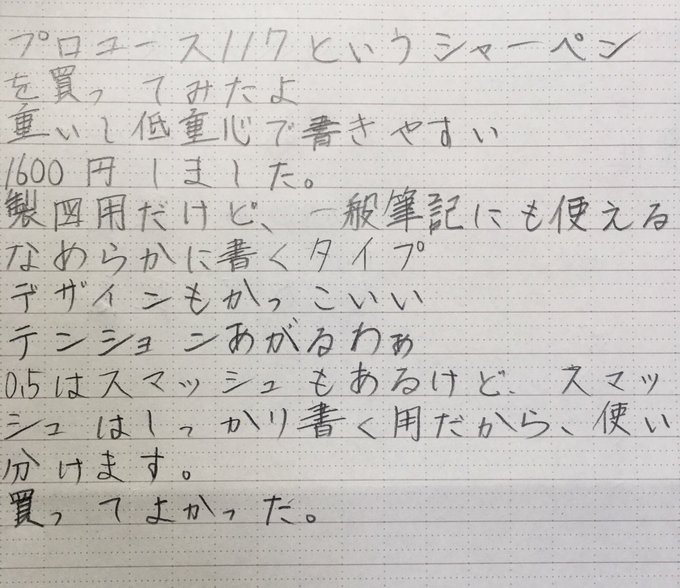 プロユース117というシャーペン
を買ってみたよ
重いし低重心で書きやすい
1600円しました。
製図用だけど、一般筆記にも使える
なめらかに書くタイプ
デザインもかっこいい
テンションあがるわぁ
0.5はスマッシュもあるけど、スマッ
シュはしっかり書く用だから、使い
分けます。
買ってよかった。